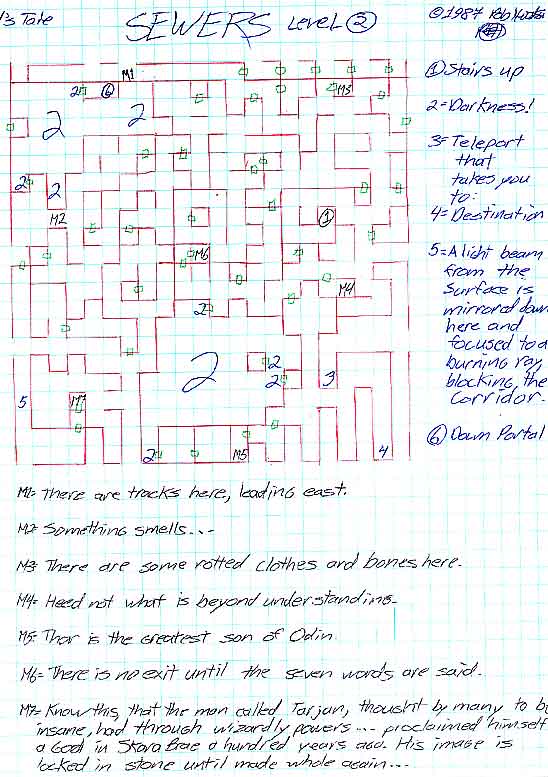 's Tale
SEWERS Level ②
©1987 Rob
① Stairs up
2 = Darkness!
3 = Teleport
that
takes you
to:
4 = Destination
5 = A light beam
from the
Surface is
mirrored down
here and
focused to a
burning ray,
blocking the
Corridor.
⑥ Down Portal
M1
2 ⑥
M3
2
2
2
2
M2
①
M6
M4
2
2
2
2
5
M7
3
2
M5
4
M1= There are tracks here, leading east.
M2= Something smells...
M3= There are some rotted clothes and bones here.
M4= Heed not what is beyond understanding.
M5= Thor is the greatest son of Odin.
M6= There is no exit until the seven words are said.
M7= Know this, that the man called Tarjan, thought by many to be
insane, had through wizardly powers... proclaimed himself
a God in Skara Brae a hundred years ago. His image is
locked in stone until made whole again...